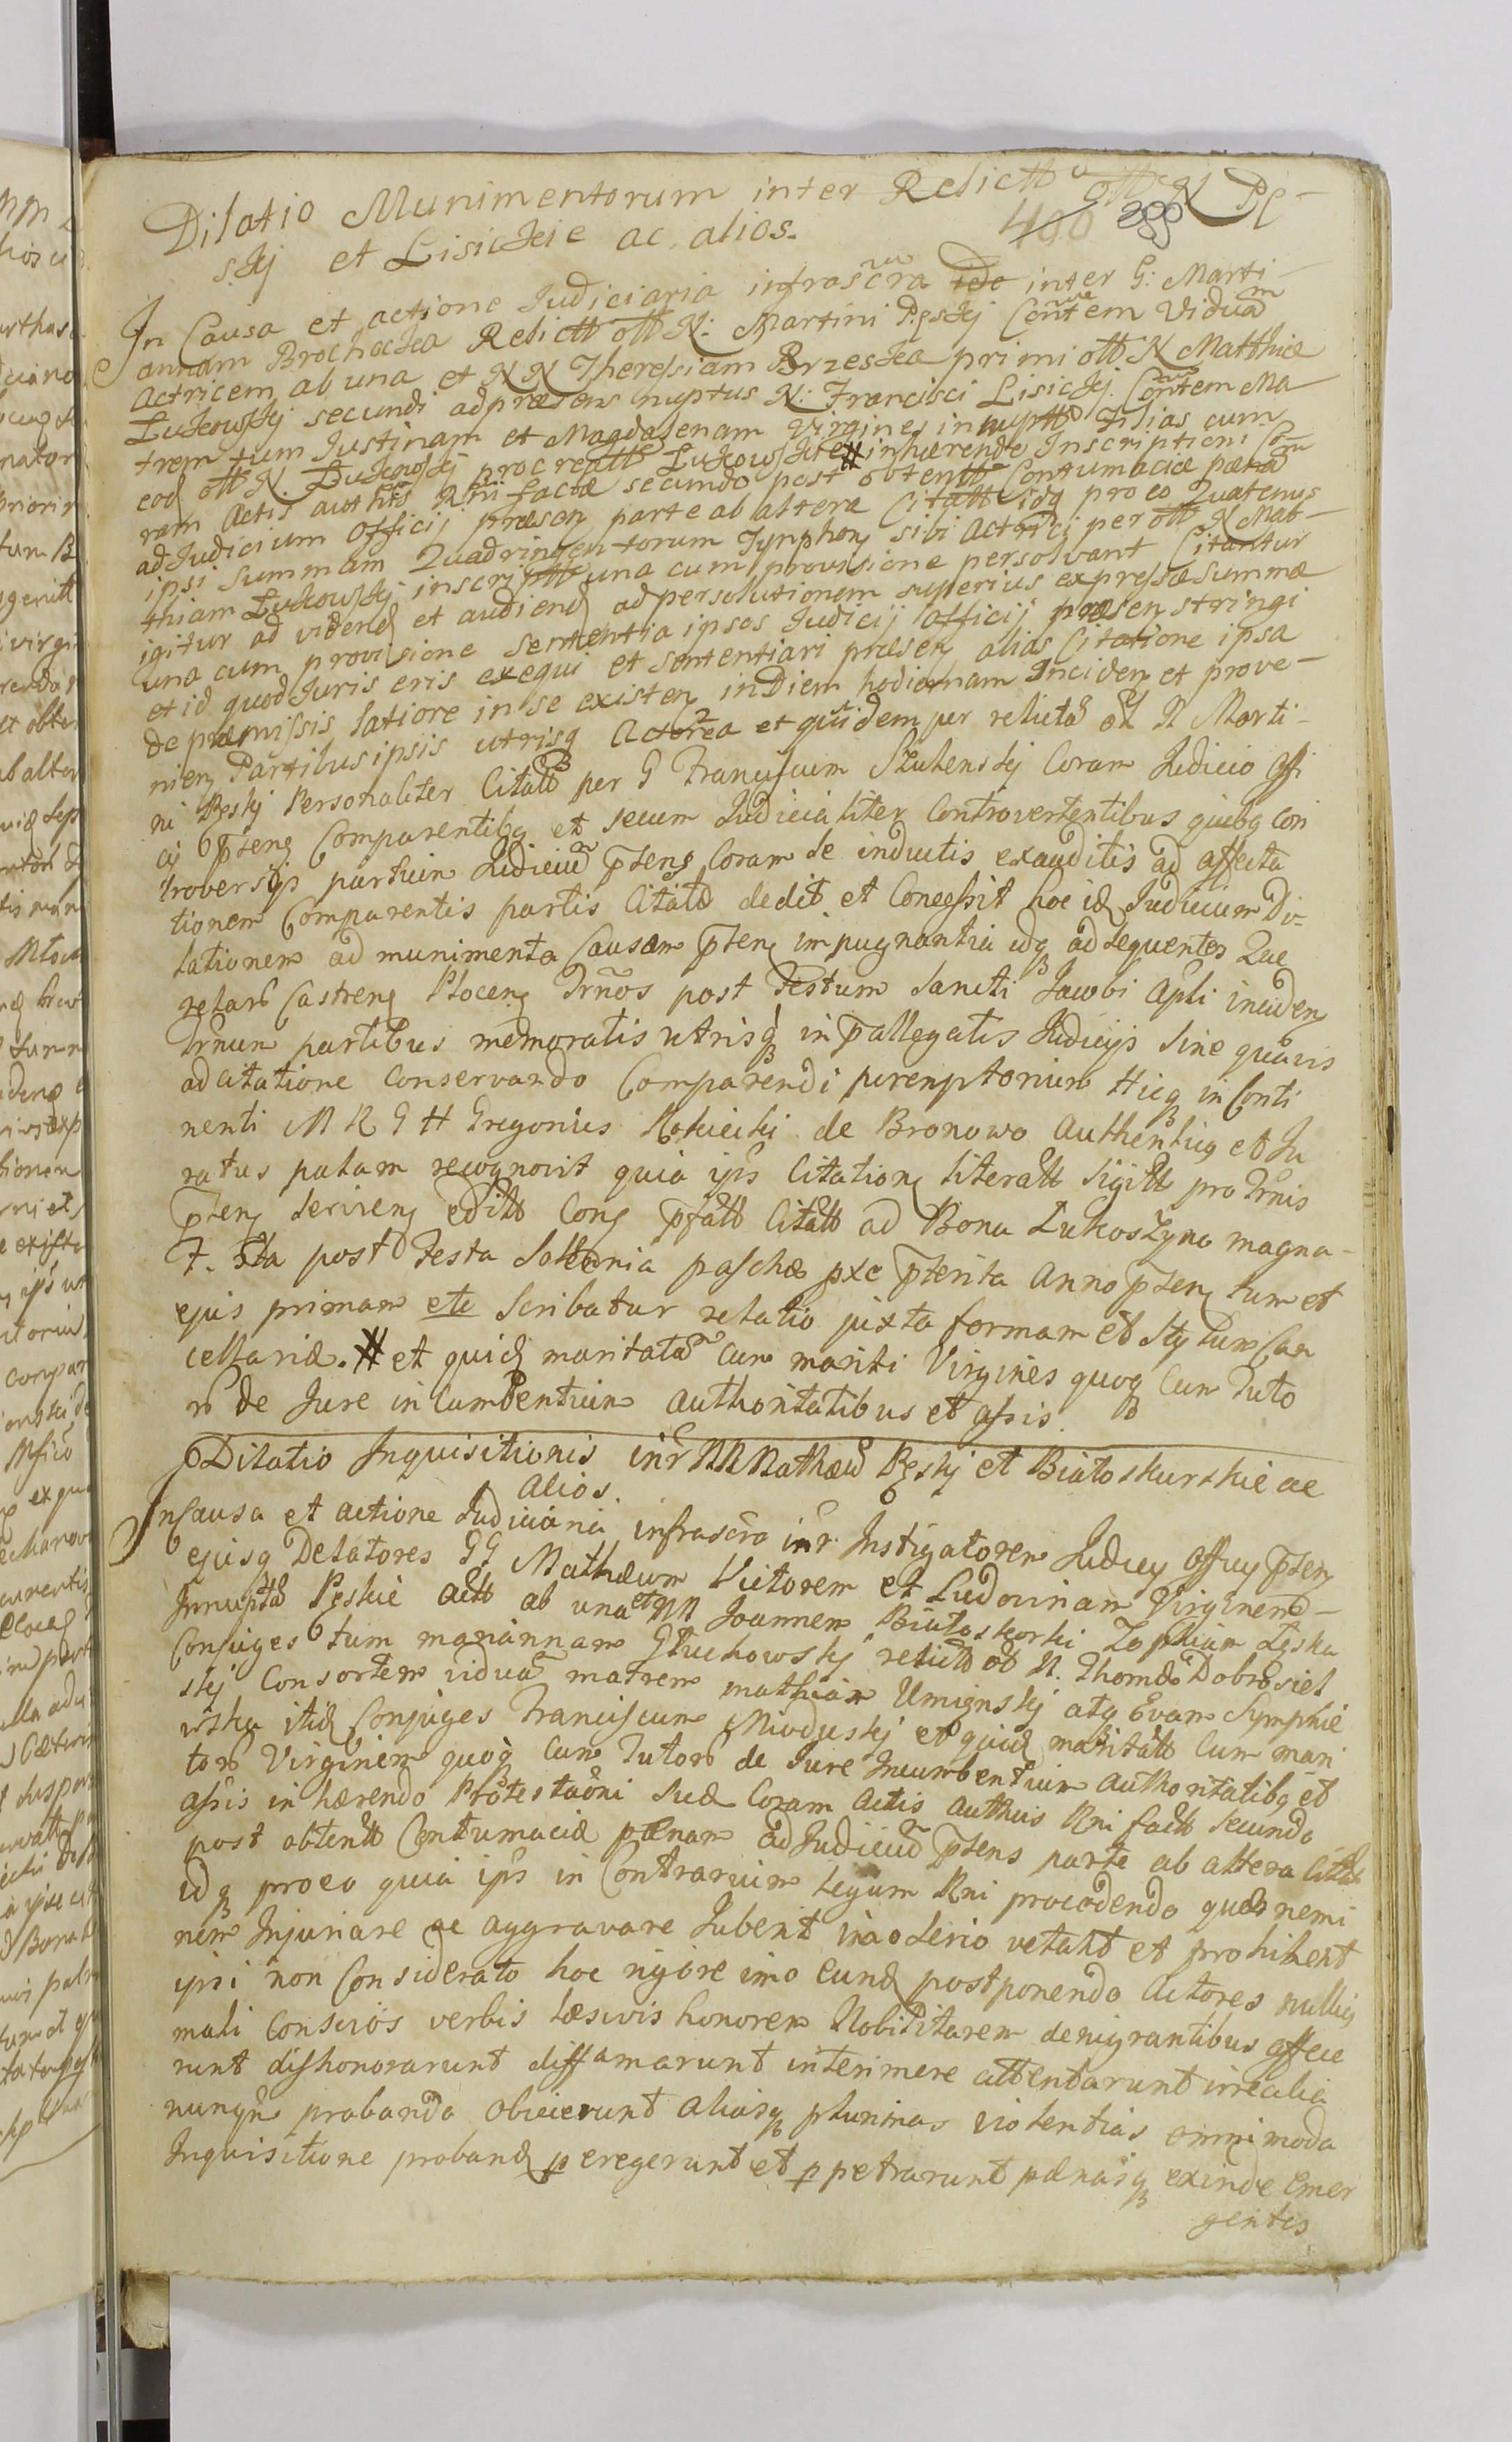 Dilatio Munimentorum inter Relictt ott N Pę-
skj et Lisickie ac alios.
400 288
In Causa et actione Judiciaria infrascra inter G: Marti-
annam Brochocka Relictt ott N: Martini Pęskj Contem Viduam
Actricem ab una et N N Theressiam Brzeska primi ott N Matthiæ
Lukowskj secundi ad præsens nuptus N: Francisci Lisickj Contem Ma-
trem tum Justinam et Magdalenam Virgines innuptt Filias cum
eod ott N. Lukowskj procreatt Lukowskie # inhærendo Inscriptioni Co-
ram Actis auth Rni factæ secundo post obtentt Contumaciæ pœnā
ad Judicium Officij præsen parte ab altera Citatt idq pro eo Quatenus
ipsi Summam Quadringentorum Tynphon sibi Actrici per ott N Mat-
thiam Lukowskj inscriptt una cum provisione persolvant Citantur
igitur ad videnđ et audienđ ad persolutionem superius expressæ Summæ
una cum provisione Sententia ipsos Judicij Officij præsen stringi
et id quod Juris eris exequi et sententiari præsen alias Citatione ipsa
de præmissis latiore in se existen in Diem hodiernam Inciden et prove-
nien Partibus ipsis utrisq Actorea et quidem per relictā ott N Marti-
ni Pęskj Personaliter Citatt per G Franciscum Skulenskj Coram Judicio Offi
cij pten Comparentibq et secum Judicialiter Controvertentibus quibq Con
troversijs partium Judiciū ptens Coram se inductis exauditis ad affecta
tionem Comparentis partis Citatæ dedit et Concessit hoc id Judicium Di-
lationem ad munimenta Causam pten impugnantia idq ad sequentes Quæ
relarū Castren Plocen Trnos post Festum Sancti Jacobi Apli inciden
Trnum partibus memoratis utrisq in pallegatis Judicijs Sine quavis
adcitatione conservando Comparendi peremptorium Hicq in Conti
nenti M R G H Gregorius Rokicki de Bronowo Authenticq et Ju
ratus palam recognovit quia ips Citation literatt Sigitt pro Trnis
pten servien editt Con pfatt Citatt ad Bona Lukoszyno magna-
F. 5ta post Festa Solennia paschæ pxe pterita Anno pten tum et
ejus primam etc Scribatur relatio juxta formam et Stylum Can
cellariæ. # et quid maritatā cum mariti Virgines quoq Cum Tuto
rū de Jure incumbentium authoritatibus et assis
Dilatio Inquisitionis inr NN Mathæū Pęskj et Białoskurskie ac
alios
In Causa et actione Judiciaria infrascra inr Instigatorem Judicij Officij pten
ejusq Delatores GG Mathæum Victorem et Ludovinam Virginem-
Innuptā Pęskie Actt ab una et NN Joannem Białoskorski Zophiam Łęska
Conjuges tum mariannam Głuchowskj relictt ott N. Thomæ Dobrosiel
skj Consortem viduā matrem mathiam Umienskj atq Evam Symphie
wska itid Conjuges Franciscum Mioduskj et quid maritatt Cum mari
torū Virginem quoq Cum Tutorū de Jure Incumbentium authoritatibq et
assis inhærendo Protestaoni Suæ Coram Actis authcis Rni factt secundo
post obtentt Contumaciæ pœnam ad Judiciū ptens parte ab altera Citatt
idq pro eo quia ips in Contrarium legum Rni procedendo quæ nemi
nem Injuriare ac aggravare Jubent imo serio vetant et prohibent
ipsi non Considerato hoc rigore imo eund postponendo Actores nulliq
mali Conscios verbis læsivis honorem Nobilitarem denigrantibus affece
runt dishonorarunt diffamarunt interimere attentarunt irrealia
nunqm probanda obiecerunt aliasq plurimas violentias omnimoda
Inquisitione proband peregerunt et ppetrarunt pœnasq exinde Emer
gentes